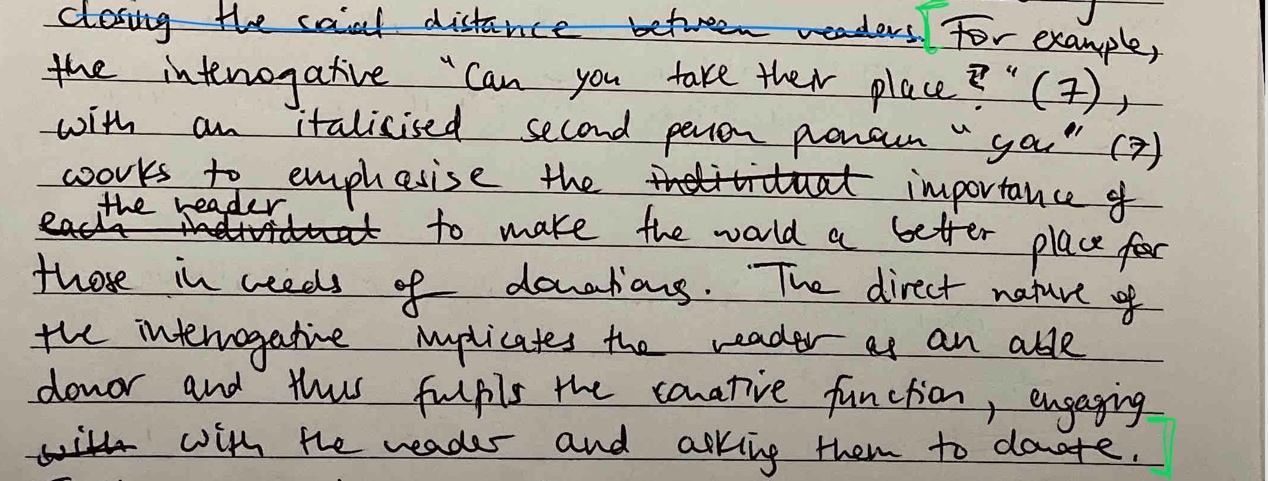 closing the social distance between readers. For example,
the interrogative "Can you take their place?" (7),
with an italicised second person pronoun "you" (7)
works to emphasise the individual importance of
the reader
each individual to make the world a better place for
those in needs of donations. The direct nature of
the interrogative implicates the reader as an able
donor and thus fulfils the conative function, engaging
with with the reader and asking them to donate.